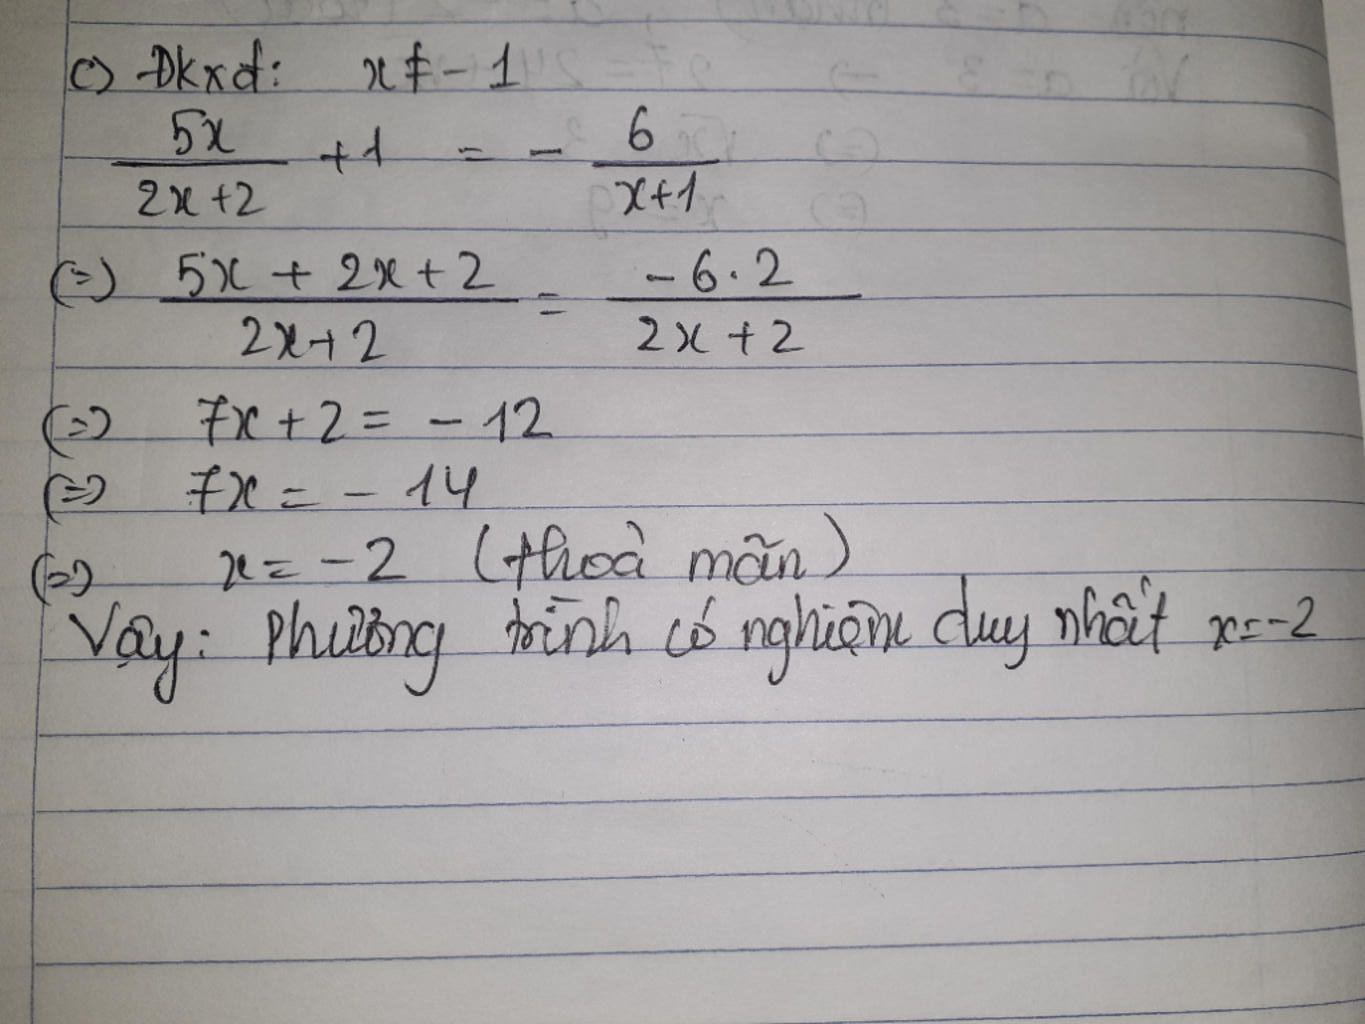 c) Đkxđ: x ≠ - 1
5x/(2x+2) + 1 = - 6/(x+1)
(=) (5x + 2x + 2)/(2x+2) = (-6.2)/(2x+2)
(=) 7x + 2 = - 12
(=) 7x = - 14
(=) x = - 2 (thoả mãn)
Vậy: Phương trình có nghiệm duy nhất x = -2